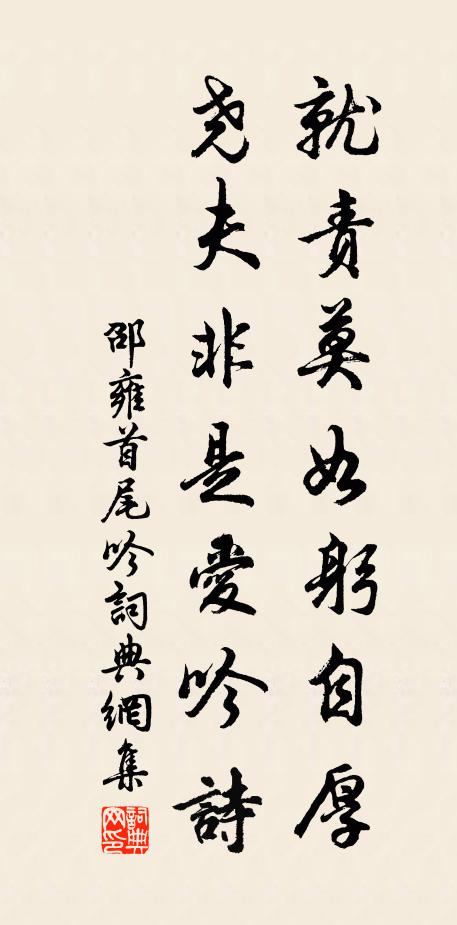 就責莫如躬自厚
堯夫非是愛吟詩
邵雍首尾吟詞典網集
詞典网印